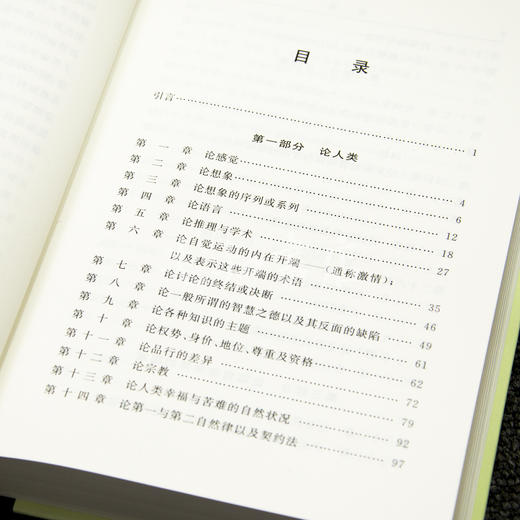 目 录
引言……1
第一部分 论人类
第一章 论感觉……4
第二章 论想象……6
第三章 论想象的序列或系列……12
第四章 论语言……18
第五章 论推理与学术……27
第六章 论自觉运动的内在开端——(通称激情);
以及表示这些开端的术语……35
第七章 论讨论的终结或决断……46
第八章 论一般所谓的智慧之德以及其反面的缺陷……49
第九章 论各种知识的主题……61
第十章 论权势、身价、地位、尊重及资格……62
第十一章 论品行的差异……72
第十二章 论宗教……79
第十三章 论人类幸福与苦难的自然状况……92
第十四章 论第一与第二自然律以及契约法……97